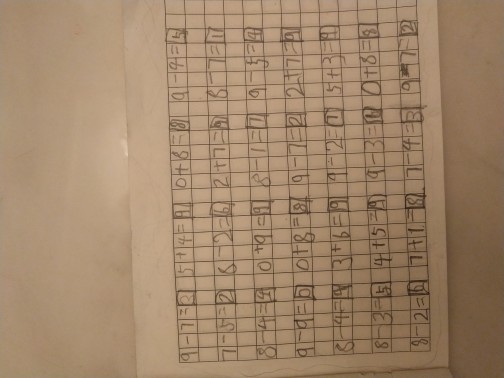 9-7=2 5+4=9 0+8=8 9-4=5
7-5=2 8-2=6 2+7=9 8-7=1
8-4=4 0+9=9 8-1=7 9-5=4
9-9=0 0+8=8 9-7=2 2+7=9
8-4=4 3+6=9 9-2=7 5+3=
8-3=5 4+5=9 9-3=6 0+8=8
8-2= 7+1=8 7-4=3 9-7=2